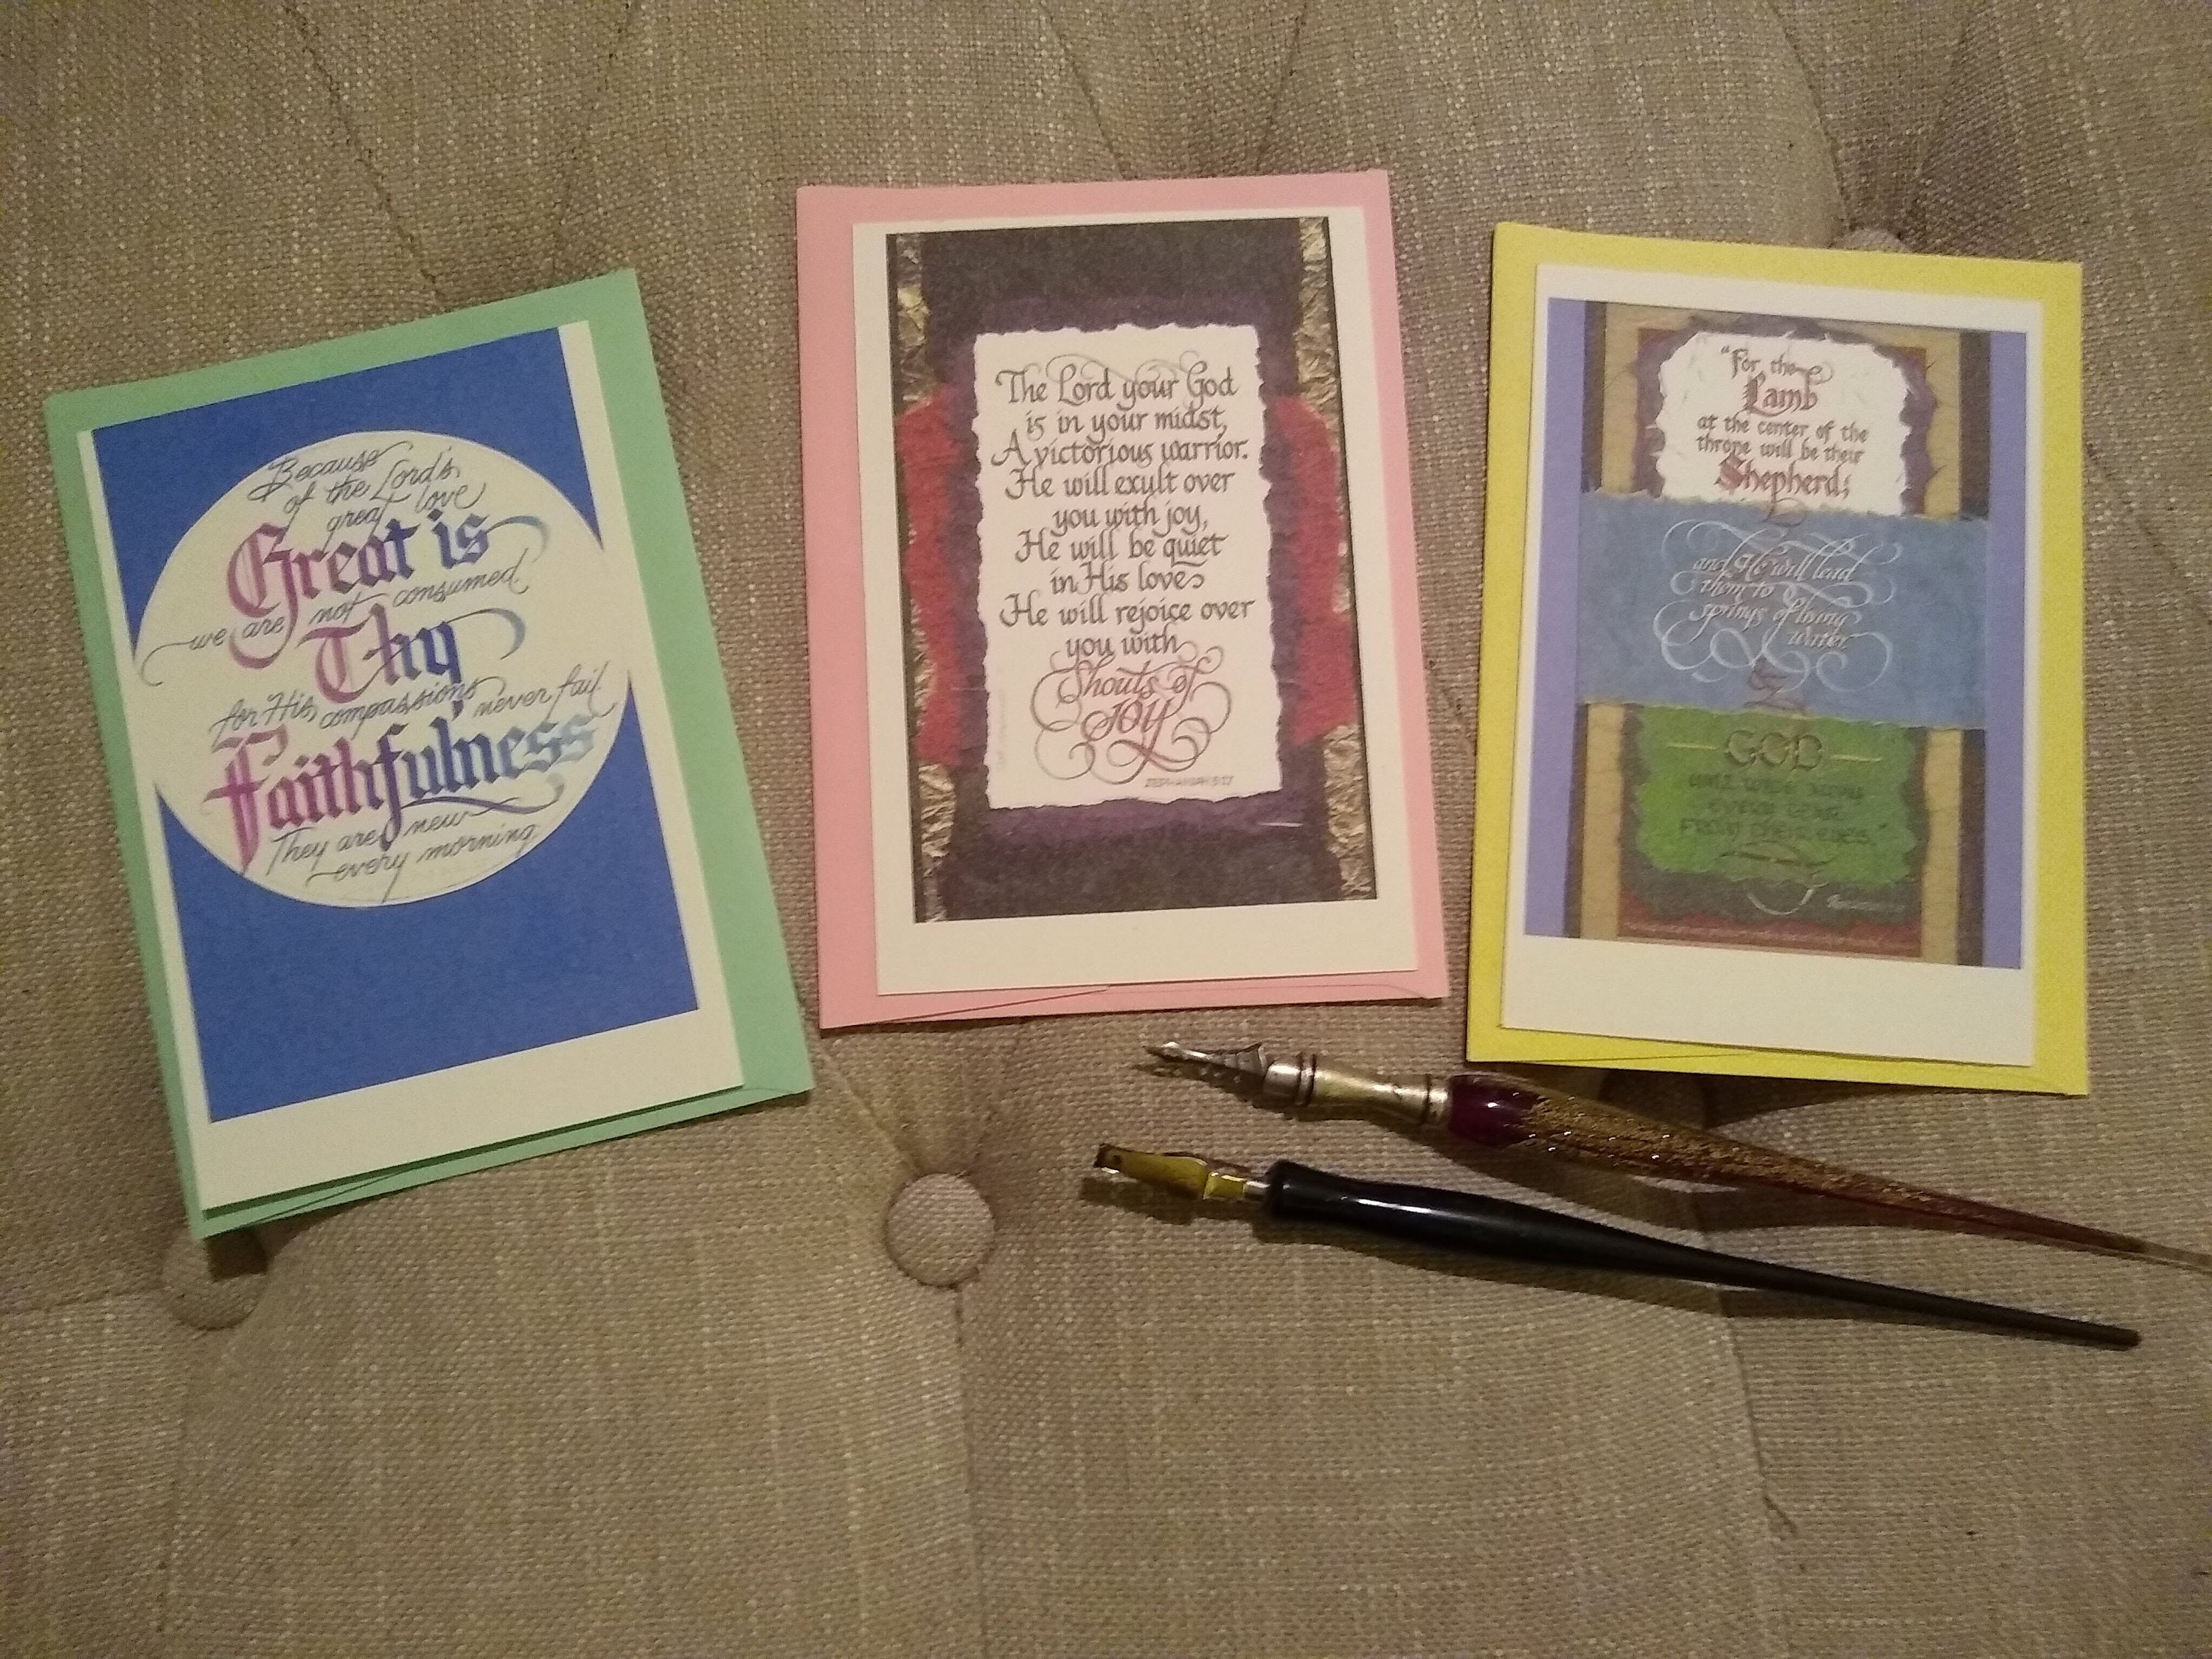 Because
of the Lord's
great love
Great is
we are not consumed.
Thy
for His compassions never fail.
Faithfulness
They are new
every morning.
The Lord your God
is in your midst,
A victorious warrior.
He will exult over
you with joy,
He will be quiet
in His love
He will rejoice over
you with
Shouts of
JOY
ZEPHANIAH 3:17
"For the
Lamb
at the center of the
throne will be their
Shepherd;
and He will lead
them to
springs of living
water.
GOD
WILL WIPE AWAY
EVERY TEAR
FROM THEIR EYES."